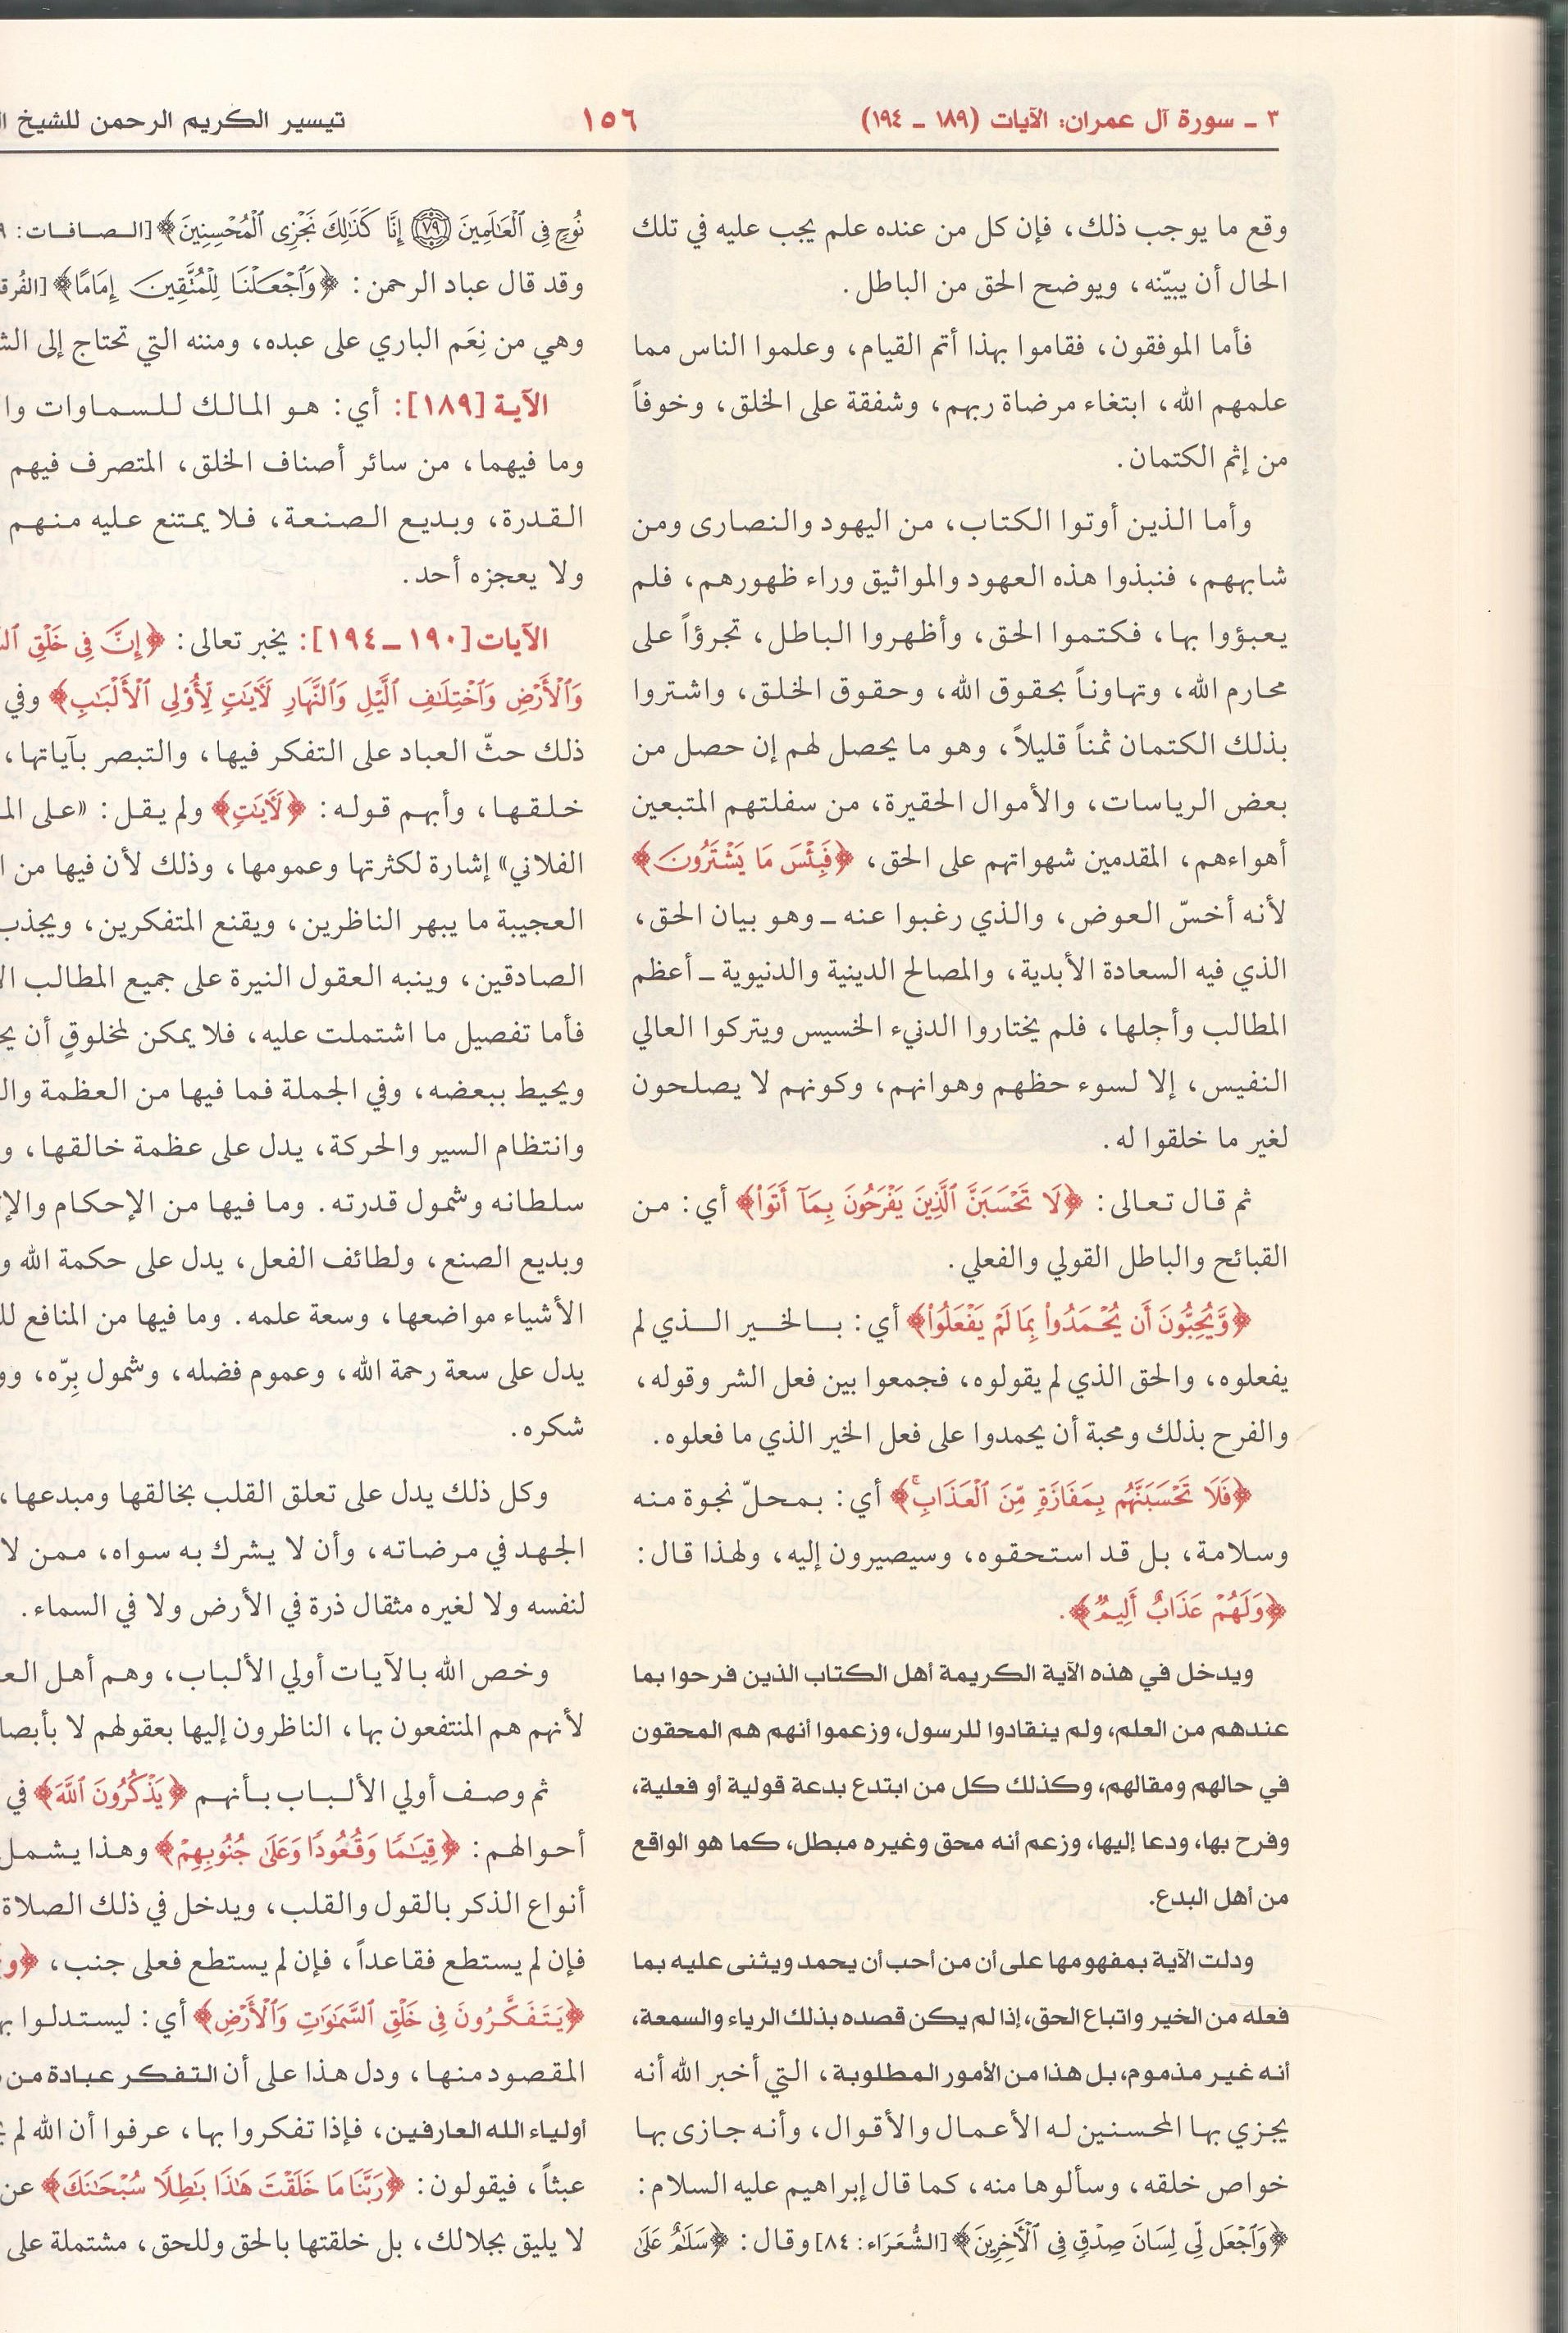 ٣ ـ سورة آل عمران: الآيات (١٨٩ ـ ١٩٤)
١٥٦
تيسير الكريم الرحمن للشيخ
وقع ما يوجب ذلك، فإن كل من عنده علم يجب عليه في تلك
الحال أن يبيّنه، ويوضح الحق من الباطل.
فأما الموفقون، فقاموا بهذا أتم القيام، وعلموا الناس مما
علمهم الله، ابتغاء مرضاة ربهم، وشفقة على الخلق، وخوفاً
من إثم الكتمان.
وأما الذين أوتوا الكتاب، من اليهود والنصارى ومن
شابههم، فنبذوا هذه العهود والمواثيق وراء ظهورهم، فلم
يعبؤوا بها، فكتموا الحق، وأظهروا الباطل، تجرؤاً على
محارم الله، وتهاوناً بحقوق الله، وحقوق الخلق، واشتروا
بذلك الكتمان ثمناً قليلاً، وهو ما يحصل لهم إن حصل من
بعض الرياسات، والأموال الحقيرة، من سفلتهم المتبعين
أهواءهم، المقدمين شهواتهم على الحق، ﴿فَبِئْسَ مَا يَشْتَرُونَ﴾
لأنه أخسّ العوض، والذي رغبوا عنه ـ وهو بيان الحق،
الذي فيه السعادة الأبدية، والمصالح الدينية والدنيوية ـ أعظم
المطالب وأجلها، فلم يختاروا الدنيء الخسيس ويتركوا العالي
النفيس، إلا لسوء حظهم وهوانهم، وكونهم لا يصلحون
لغير ما خلقوا له.
ثم قال تعالى: ﴿لَا تَحْسَبَنَّ ٱلَّذِينَ يَفْرَحُونَ بِمَآ أَتَوا۟﴾ أي: من
القبائح والباطل القولي والفعلي.
﴿وَّيُحِبُّونَ أَن يُحْمَدُوا۟ بِمَا لَمْ يَفْعَلُوا۟﴾ أي: بالخير الذي لم
يفعلوه، والحق الذي لم يقولوه، فجمعوا بين فعل الشر وقوله،
والفرح بذلك ومحبة أن يحمدوا على فعل الخير الذي ما فعلوه.
﴿فَلَا تَحْسَبَنَّهُم بِمَفَازَةٍ مِّنَ ٱلْعَذَابِۚ﴾ أي: بمحلّ نجوة منه
وسلامة، بل قد استحقوه، وسيصيرون إليه، ولهذا قال:
﴿وَلَهُمْ عَذَابٌ أَلِيمٌ﴾.
ويدخل في هذه الآية الكريمة أهل الكتاب الذين فرحوا بما
عندهم من العلم، ولم ينقادوا للرسول، وزعموا أنهم هم المحقون
في حالهم ومقالهم، وكذلك كل من ابتدع بدعة قولية أو فعلية،
وفرح بها، ودعا إليها، وزعم أنه محق وغيره مبطل، كما هو الواقع
من أهل البدع.
ودلت الآية بمفهومها على أن من أحب أن يحمد ويثنى عليه بما
فعله من الخير واتباع الحق، إذا لم يكن قصده بذلك الرياء والسمعة،
أنه غير مذموم، بل هذا من الأمور المطلوبة، التي أخبر الله أنه
يجزي بها المحسنين له الأعمال والأقوال، وأنه جازى بها
خواص خلقه، وسألوها منه، كما قال إبراهيم عليه السلام:
﴿وَٱجْعَل لِّى لِسَانَ صِدْقٍ فِى ٱلْـَٔاخِرِينَ﴾ [الشُّعَرَاء: ٨٤] وقال: ﴿سَلَـٰمٌ عَلَىٰ
نُوحٍ فِى ٱلْعَـٰلَمِينَ ٧٩ إِنَّا كَذَٰلِكَ نَجْزِى ٱلْمُحْسِنِينَ﴾ [الصافات:
وقد قال عباد الرحمن: ﴿وَٱجْعَلْنَا لِلْمُتَّقِينَ إِمَامًا﴾
وهي من نِعَم الباري على عبده، ومننه التي تحتاج إلى
الآية [١٨٩]: أي: هو المالك للسماوات
وما فيهما، من سائر أصناف الخلق، المتصرف فيهم
القدرة، وبديع الصنعة، فلا يمتنع عليه منهم
ولا يعجزه أحد.
الآيات [١٩٠ ـ ١٩٤]: يخبر تعالى: ﴿إِنَّ فِى خَلْقِ
وَٱلْأَرْضِ وَٱخْتِلَـٰفِ ٱلَّيْلِ وَٱلنَّهَارِ لَـَٔايَـٰتٍ لِّأُو۟لِى ٱلْأَلْبَـٰبِ﴾ وفي
ذلك حثّ العباد على التفكر فيها، والتبصر بآياتها،
خلقها، وأبهم قوله: ﴿لَـَٔايَـٰتٍ﴾ ولم يقل: «على
الفلاني» إشارة لكثرتها وعمومها، وذلك لأن فيها من
العجيبة ما يبهر الناظرين، ويقنع المتفكرين، ويجذب
الصادقين، وينبه العقول النيرة على جميع المطالب
فأما تفصيل ما اشتملت عليه، فلا يمكن لمخلوقٍ أن
ويحيط ببعضه، وفي الجملة فما فيها من العظمة
وانتظام السير والحركة، يدل على عظمة خالقها،
سلطانه وشمول قدرته. وما فيها من الإحكام
وبديع الصنع، ولطائف الفعل، يدل على حكمة الله
الأشياء مواضعها، وسعة علمه. وما فيها من المنافع
يدل على سعة رحمة الله، وعموم فضله، وشمول بِرّه،
شكره.
وكل ذلك يدل على تعلق القلب بخالقها ومبدعها،
الجهد في مرضاته، وأن لا يشرك به سواه، ممن لا
لنفسه ولا لغيره مثقال ذرة في الأرض ولا في السماء.
وخص الله بالآيات أولي الألباب، وهم أهل
لأنهم هم المنتفعون بها، الناظرون إليها بعقولهم لا
ثم وصف أولي الألباب بأنهم ﴿يَذْكُرُونَ ٱللَّهَ﴾ في
أحوالهم: ﴿قِيَـٰمًا وَقُعُودًا وَعَلَىٰ جُنُوبِهِمْ﴾ وهذا يشمل
أنواع الذكر بالقول والقلب، ويدخل في ذلك الصلاة
فإن لم يستطع فقاعداً، فإن لم يستطع فعلى جنب،
﴿يَتَفَكَّرُونَ فِى خَلْقِ ٱلسَّمَـٰوَٰتِ وَٱلْأَرْضِ﴾ أي: ليستدلوا
المقصود منها، ودل هذا على أن التفكر عبادة من
أولياء الله العارفين، فإذا تفكروا بها، عرفوا أن الله لم
عبثاً، فيقولون: ﴿رَبَّنَا مَا خَلَقْتَ هَـٰذَا بَـٰطِلًا سُبْحَـٰنَكَ﴾ عن
لا يليق بجلالك، بل خلقتها بالحق وللحق، مشتملة على